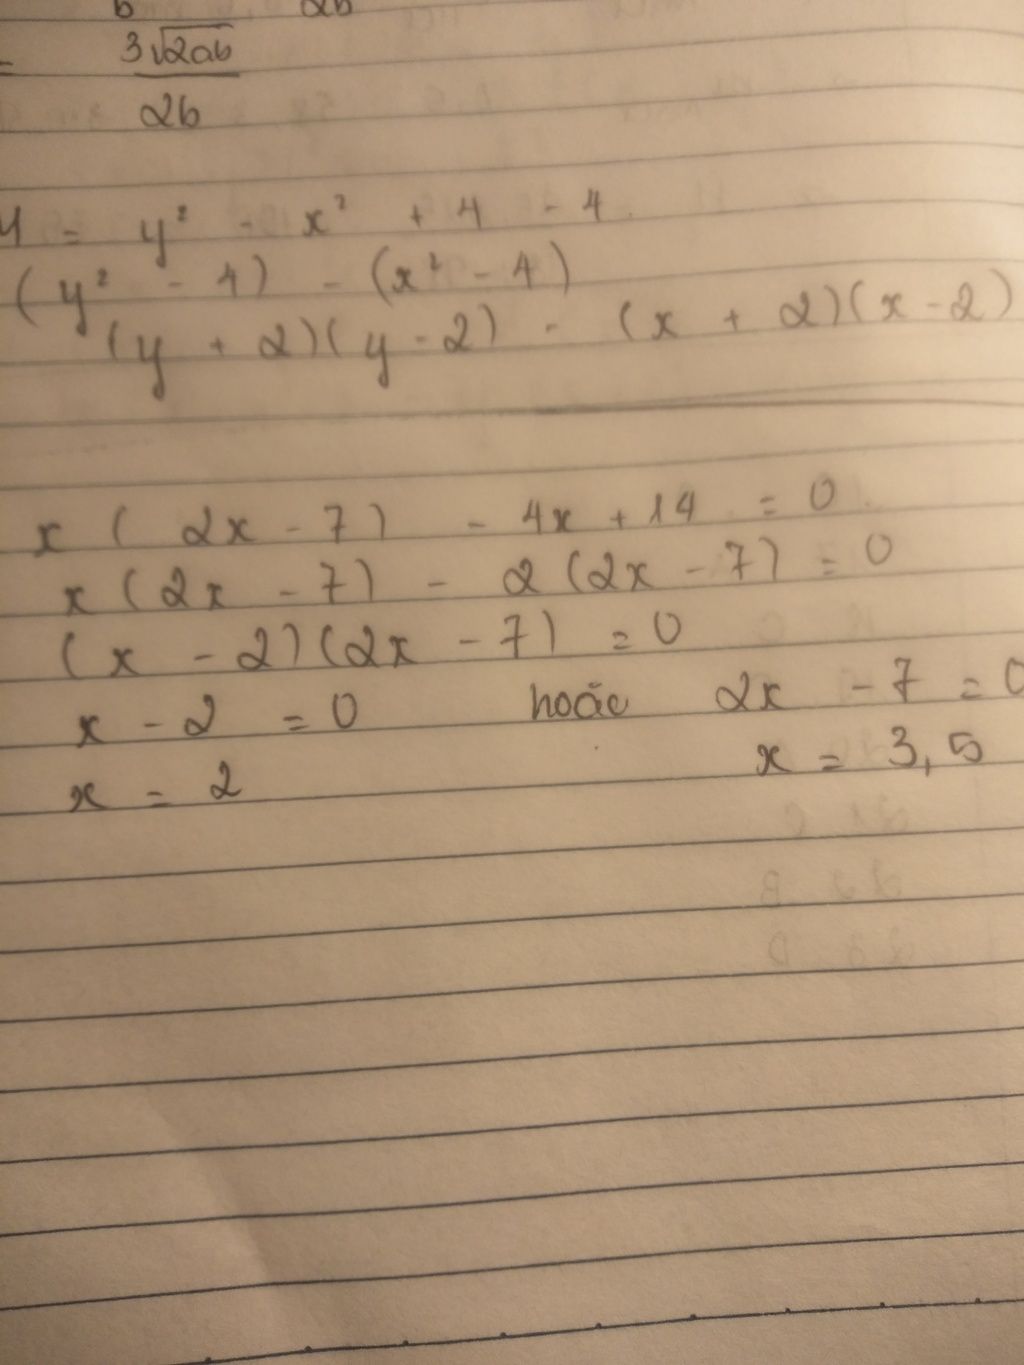 b 2b
= 3√2ab
2b
4 = y² - x² + 4 - 4
(y² - 4) - (x² - 4)
(y + 2)(y - 2) - (x + 2)(x - 2)
x ( 2x - 7 ) - 4x + 14 = 0
x (2x - 7) - 2 (2x - 7) = 0
(x - 2)(2x - 7) = 0
x - 2 = 0 hoặc 2x - 7 = 0
x = 2 x = 3,5